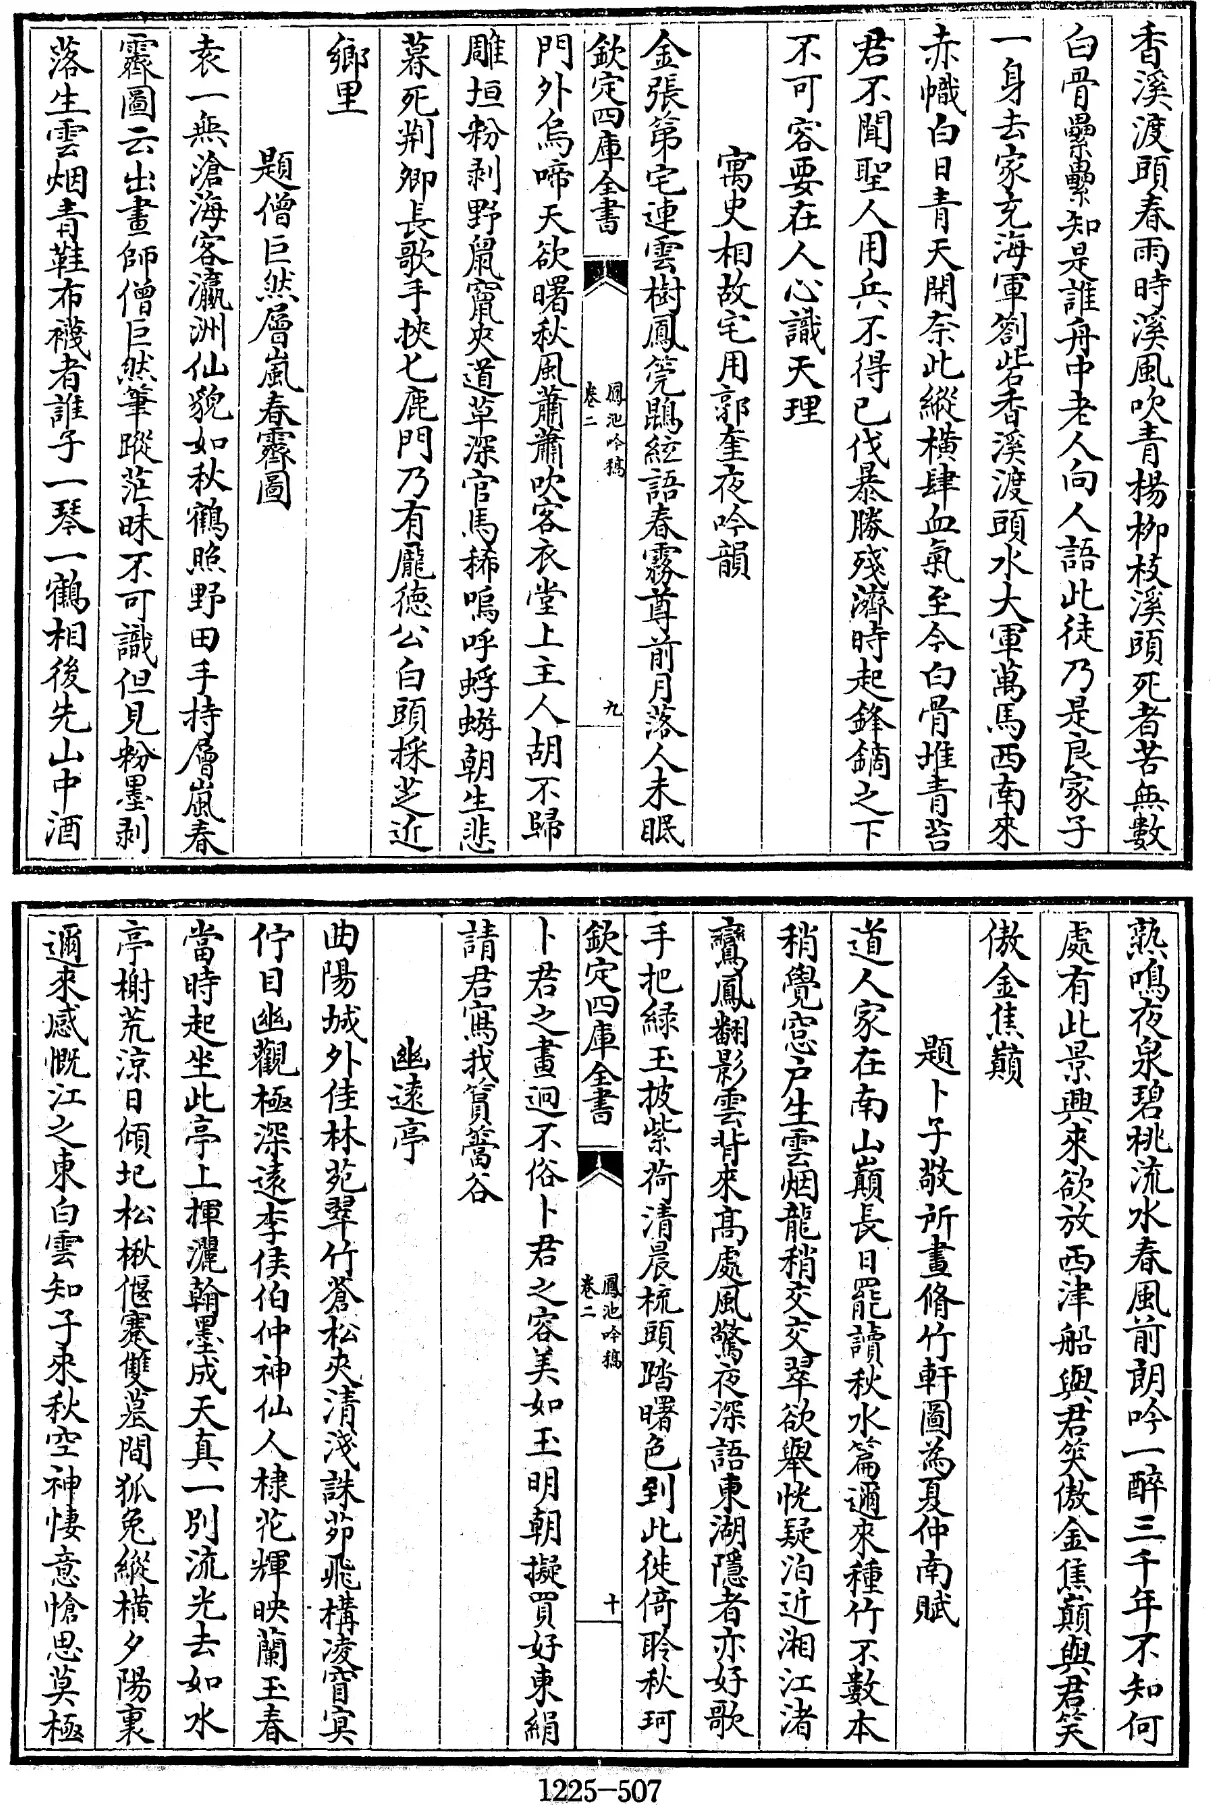 香溪渡頭春雨時溪風吹青楊柳枝溪頭死者苦無數
白骨纍纍知是誰舟中老人向人語此徒乃是良家子
一身去家充海軍劄砦香溪渡頭水大軍萬馬西南來
赤幟白日青天開奈此縱橫肆血氣至今白骨堆青苔
君不聞聖人用兵不得已伐暴勝殘濟時起鋒鏑之下
不可容要在人心識天理
寓史相故宅用郭奎夜吟韻
金張第宅連雲樹鳳筦鵾絃語春霧尊前月落人未眠
欽定四庫全書
鳳池吟稿
卷二
九
門外烏啼天欲曙秋風蕭蕭吹客衣堂上主人胡不歸
雕垣粉剥野鼠竄夾道草深官馬稀嗚呼蜉蝣朝生悲
暮死荆卿長歌手挾匕鹿門乃有龐徳公白頭採芝近
鄉里
題僧巨然層嵐春霽圖
袁一無滄海客瀛洲仙貌如秋鶴照野田手持層嵐春
霽圖云出畫師僧巨然筆蹤茫昧不可識但見粉墨剥
落生雲烟青鞋布襪者誰子一琴一鶴相後先山中酒
熟鳴夜泉碧桃流水春風前朗吟一醉三千年不知何
處有此景興來欲放西津船與君笑傲金焦巔與君笑
傲金焦巔
題卜子敬所畫脩竹軒圖為夏仲南賦
道人家在南山巔長日罷讀秋水篇邇來種竹不數本
稍覺窓户生雲烟龍稍交交翠欲舉恍疑泊近湘江渚
鸞鳳翻影雲背來高處風驚夜深語東湖隱者亦好歌
手把緑玉披紫荷清晨梳頭踏曙色到此徙倚聆秋珂
欽定四庫全書
鳳池吟稿
卷二
十
卜君之畫迥不俗卜君之容美如玉明朝擬買好東絹
請君寫我篔簹谷
幽遠亭
曲陽城外佳林苑翠竹蒼松夾清淺誅茆飛構凌窅冥
佇目幽觀極深遠李侯伯仲神仙人棣花輝映蘭玉春
當時起坐此亭上揮灑翰墨成天真一別流光去如水
亭榭荒涼日傾圯松楸偃蹇雙墓間狐兔縱横夕陽裏
邇來感慨江之東白雲知子來秋空神悽意愴思莫極
1225—507